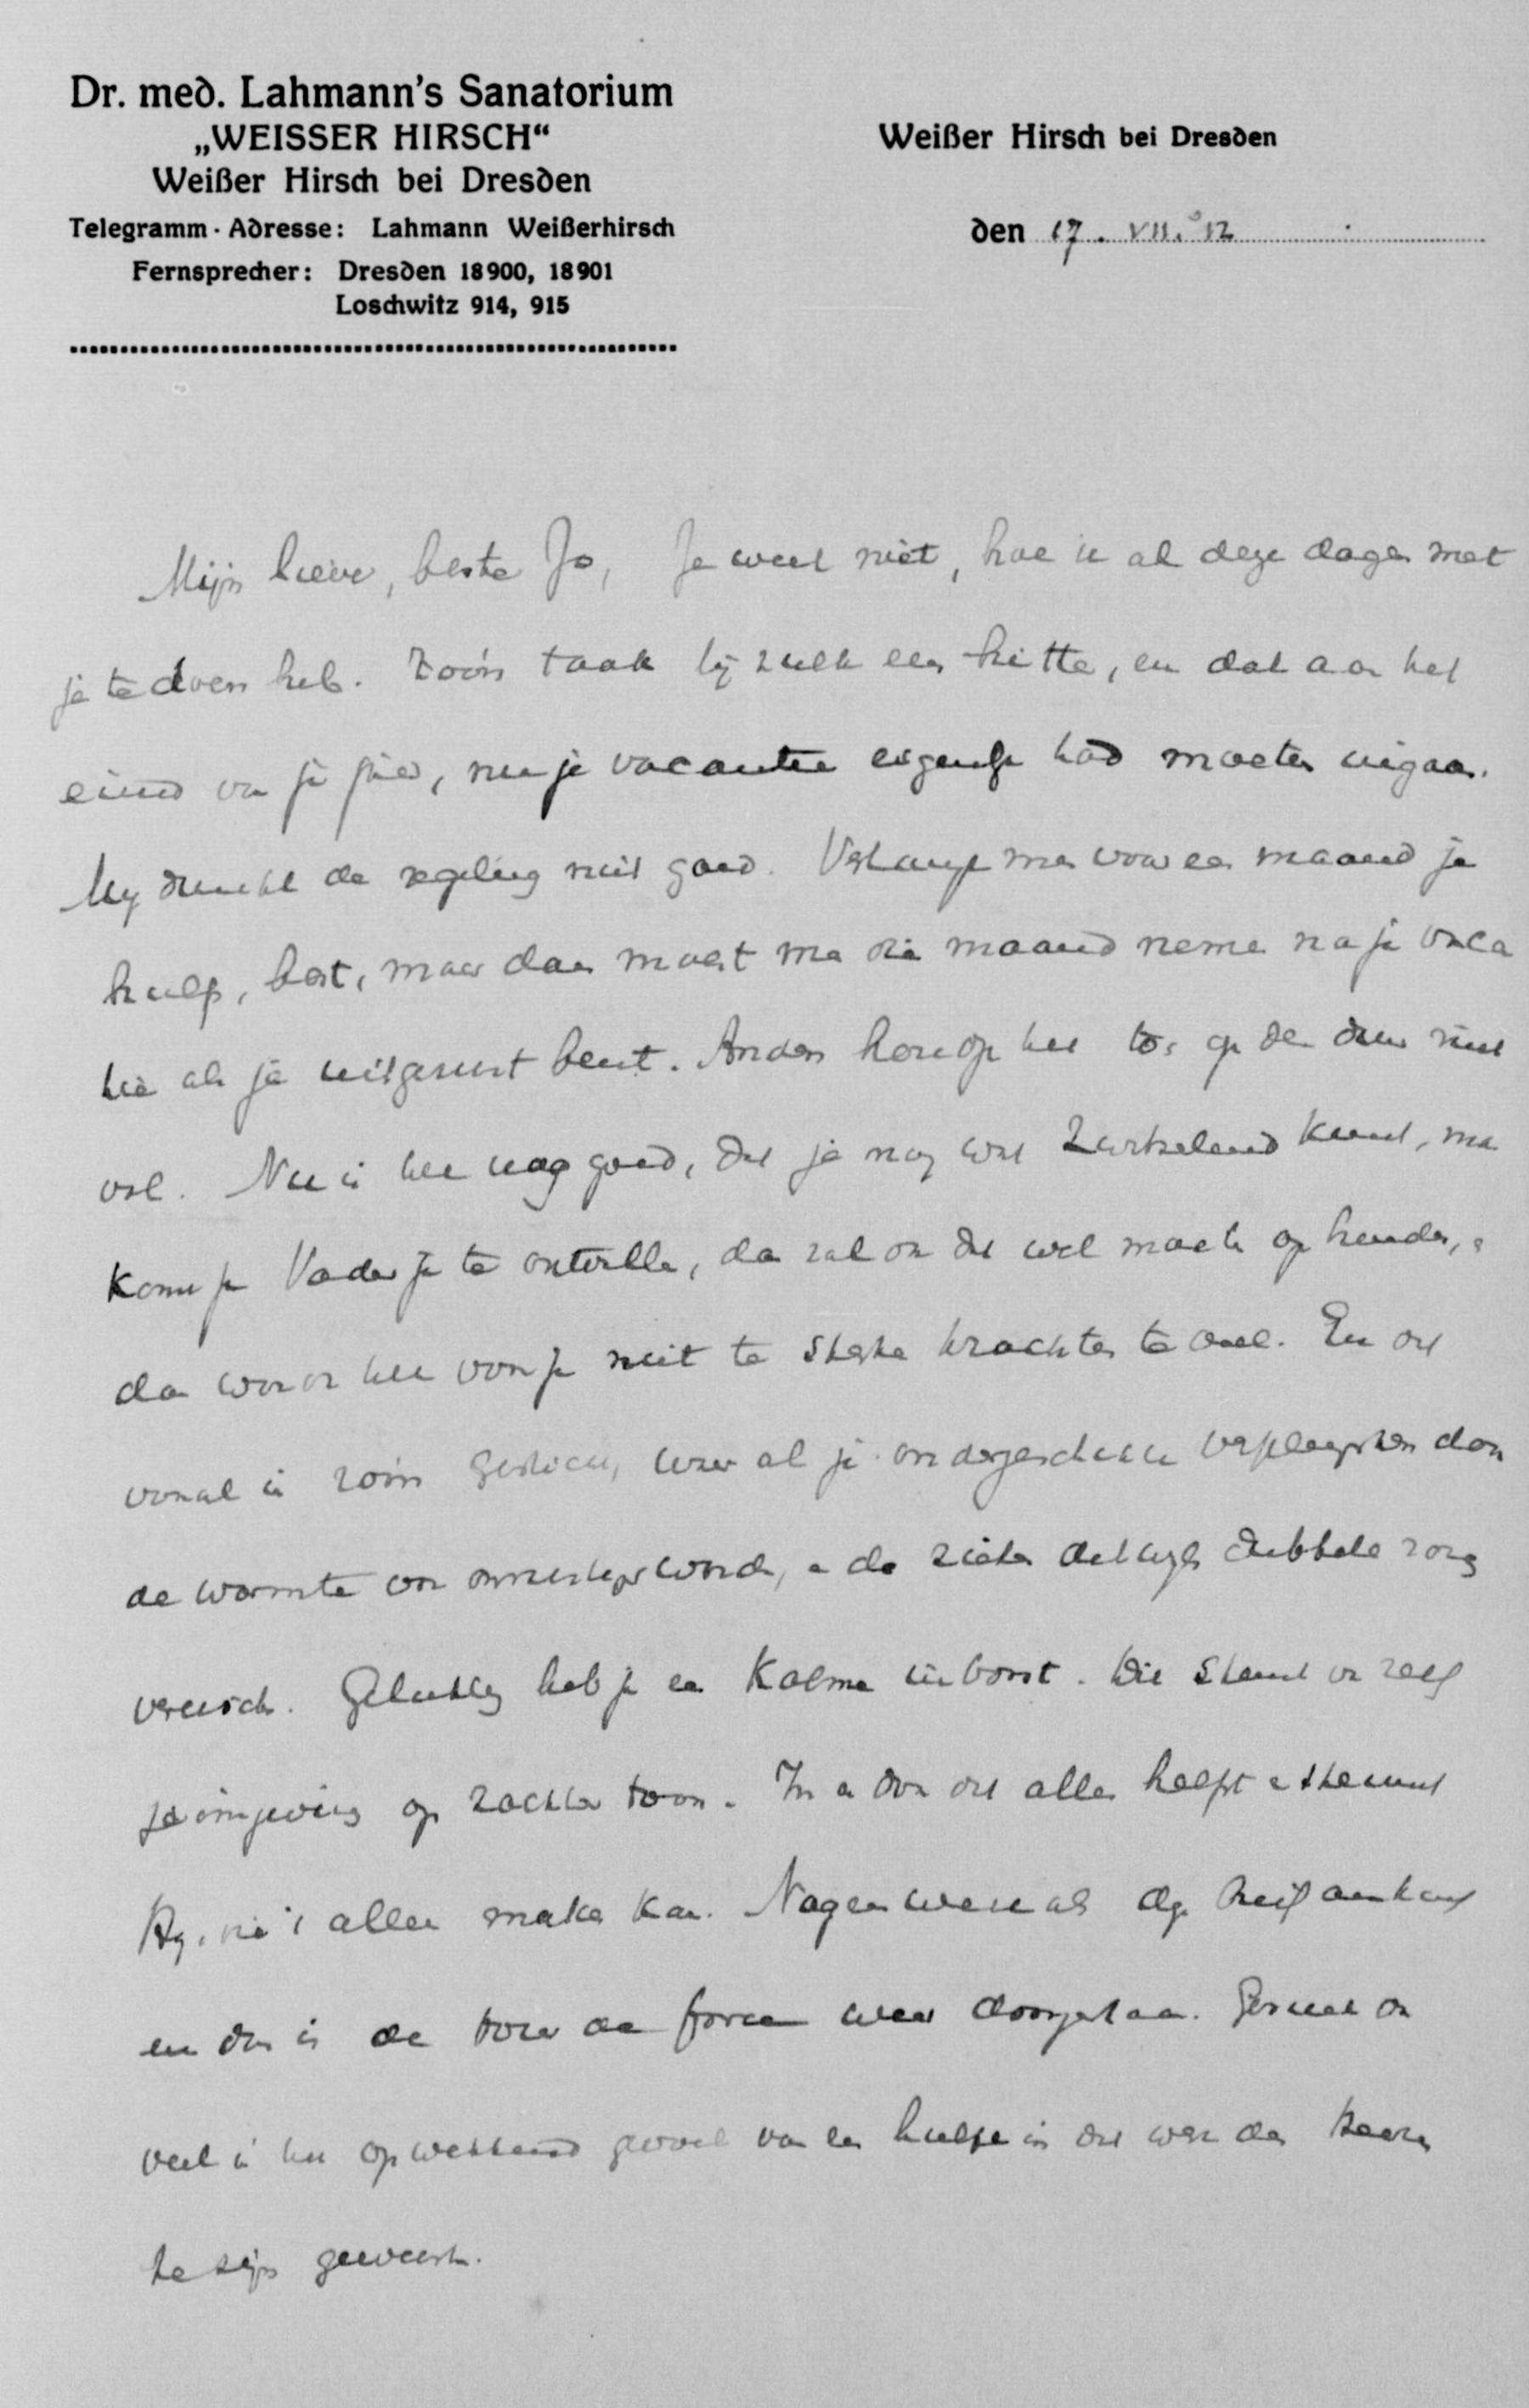 Dr. med. Lahmann's Sanatorium
„WEISSER HIRSCH“
Weißer Hirsch bei Dresden
Telegramm-Adresse: Lahmann Weißerhirsch
Fernsprecher: Dresden 18900, 18901
Loschwitz 914, 915
Weißer Hirsch bei Dresden
den 17. VII. 12
Mijn lieve, beste Jo, Je weet niet, hoe ik al deze dagen met
je te doen heb. Zoo'n taak bij zulk een hitte, en dat aan het
eind van je jaar, nu je vacantie eigenlijk had moeten ingaan.
Mij dunkt de regeling niet goed. Verlangt men voor een maand je
hulp, best, maar dan moest men die maand nemen na je vaca
tie als je uitgerust bent. Anders hou je het toch op den duur niet
vol. Nu is het nog goed, dat je nog wat kunt, maar
kom je Vader je te ontvallen, dan zal dat wel moeten ophouden,
dan het van je niet te sterke krachten te veel. En dat
vooral in zoo'n gesticht, waar al je ondergeschikte verpleegsters door
de warmte worden, en de zieken dubbele zorg
vereischen. Gelukkig heb je een kalme inborst. Die stemt van zelf
je omgeving op zachter toon. alles helpt
Hij, die 't alles maken kan. Nog een week als ik 't
en dan is de tour de force weer doorgestaan.
veel is het opwekkend gevoel van een hulpe in
te zijn geweest.